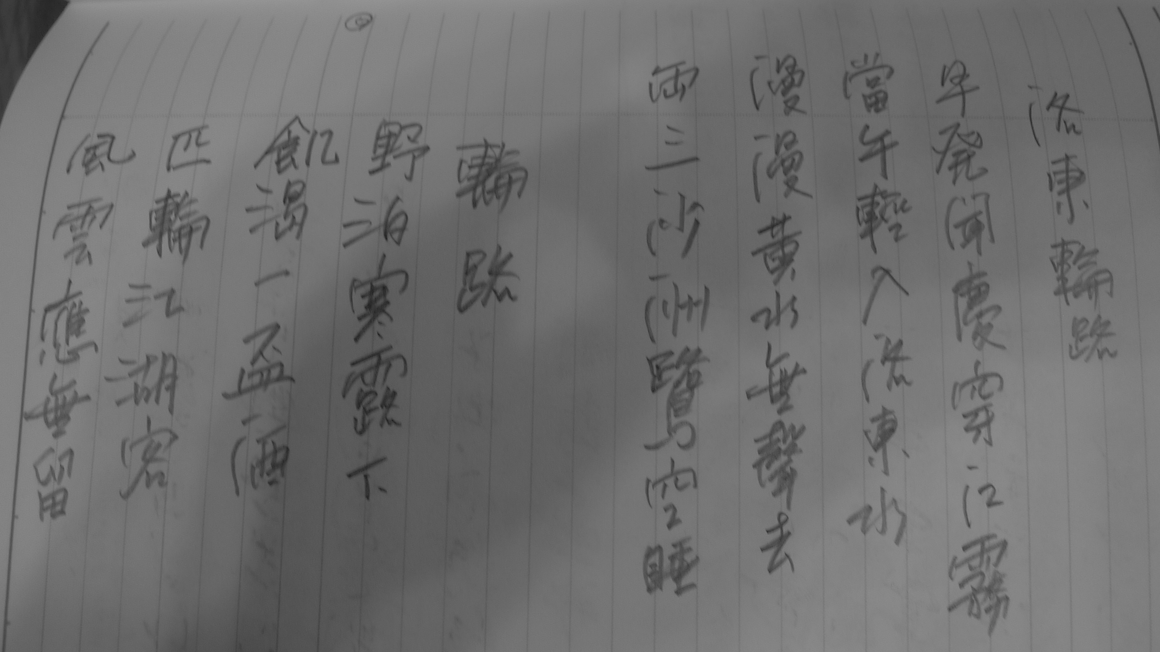 洛東輪路
早発聞慶穿江霧
當午輕入洛東水
漫漫黃水無聲去
兩三沙洲鷺空睡
輪路
野泊寒露下
飢渴一盃酒
匹輪江湖客
風雲應無留